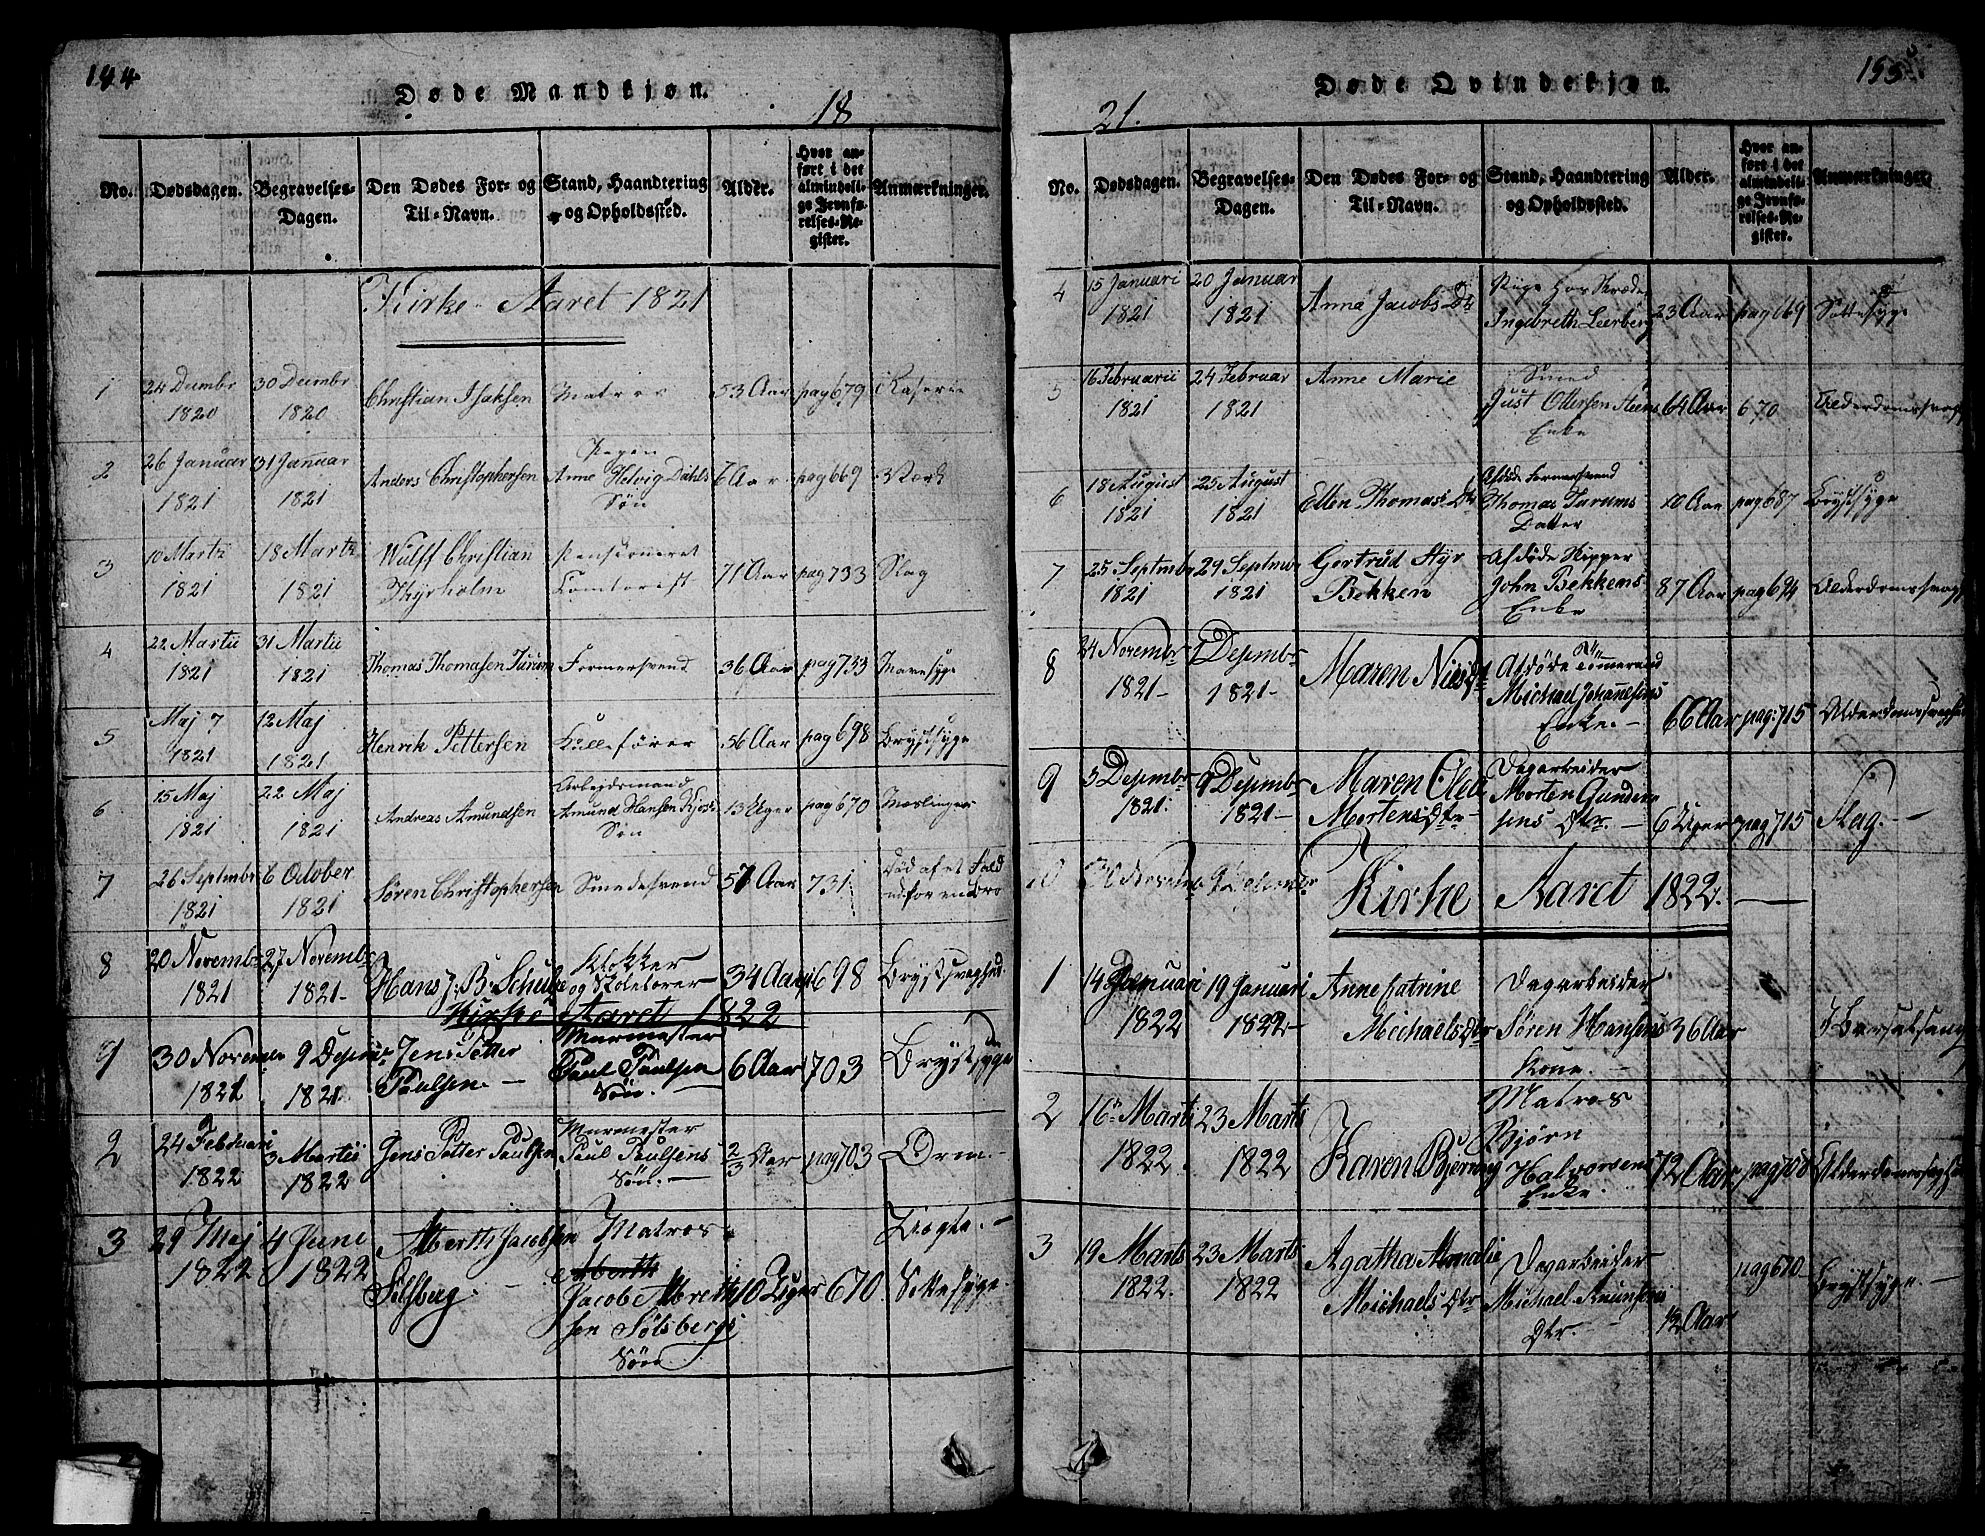 144.
Døde Mandkjøn.
18
No.
Dødsdagen.
Begravelses-Dagen.
Den Dødes For- og Til-Navn.
Stand, Haandtering og Opholdssted.
Alder.
Hvor anført i det almindelige Jevnførelses-Register.
Anmærkninger.
Kirke-Aaret 1821
1 24 Decembr 1820 30 Decembr 1820 Christian Isaksen Matros 53 Aar pag 679
2 26 Januar 1821 31 Januar 1821 Anders Christophersen Anne Helvig Dahls Søn 6 Aar pag 669 Værk
3 10 Martii 1821 18 Martii 1821 Wulff Christian Thyrholm Pensioneret Contorist 71 Aar pag 733 Slag
4 22 Martii 1821 31 Martii 1821 Thomas Thomasen Turum Formersvend 36 Aar pag 753 Mavesyge
5 Maj 7 1821 12 Maj 1821 Henrik Pettersen Kullefører 56 Aar pag 698 Brystsyge
6 15 Maj 1821 22 Maj 1821 Andreas Amundsen Arbejdsmand Amund Hansen Søn 13 Uger pag 670 Mæslinger
7 26 Septmbr 1821 6 October 1821 Søren Christophersen Smedesvend 57 Aar 731 Død af et Fald udfor en Bro
8 20 Novembr 1821 27 Novembr 1821- Hans J: B: Schulze Klokker og Skolelærer 34 Aar 698 Brystsvaghed.
Kirke Aaret 1822
9 30 Novem 1821 9 Desmbr 1821. Jens Petter Paulsen.- Murmester Paul Paulsen Søn.- 6 Aar 703 Brystsyge
2 24 Februari 1822 3 Martii 1822 Jens Petter Paulsen Murmester Paul Paulsens Søn.- 2/3 Aar pag 703 Orm.-
3 29 Maj 1822 4 Juni 1822 Alberth Jacobsen Sølsberg.- Matros Alberth Jacob Albrethsen Sølsbergs Søn 10 Uger 670
155
Døde Qvindekjøn.
21.
No.
Dødsdagen.
Begravelses-Dagen.
Den Dødes For- og Til-Navn.
Stand, Haandtering og Opholdssted.
Alder.
Hvor anført i det almindelige Jevnførelses-Register.
Anmærkninger.
4 15 Januari 1821 20 Januar 1821 Anne Jacobs Dtr Pige hos Ingebreth Leerberg 23 Aar pag 669 Sottesyge
5 16 Februarii 1821 24 Februar 1821 Anne Marie Smed Just Ottersen Steens Enke 64 Aar 670 Alderdomssvag
6 18 August 1821 25 August 1821 Ellen Thomas Dtr Afdøde Formersvend Thomas Turums Datter 10 Aar pag 687 Brystsyge
7 25 Septmbr 1821 29 Septmbr 1821 Gertrud Styr Bekken Afdøde Skipper John Bekkens Enke 87 Aar pag 694 Alderdomssvagh
8 24 Novembr 1821- 1 Desmbr 1821- Maren Nils Dtr Afdøde Tømmermand Michael Johannesens Enke.- 66 Aar pag: 715 Alderdomssvaghed
9 5 Desmbr 1821. 9 Desmbr 1821- Maren Olea Mortens Dtr- Dagarbeider Morten Gundersens Dtr.- 6 Uger pag 715 Slag.-
10
Kirke Aaret 1822.-
1 14 Januari 1822 19 Januari 1822- Anne Catrine Michaels Dtr Dagarbeider Søren Hansens Kone.- 36 Aar I Barselseng
2 16 Marti 1822. 23 Marts 1822 Karen Bjørns Matros Bjørn Halvorsens Enke. 72 Aar pag 708 Alderdomssvaghed
3 19 Marts 1822. 23 Marts 1822 Agatha Amalie Michaels Dtr Dagarbeider Michael Knudsens Dtr.- 12 Aar pag 670 Brystsyge.-